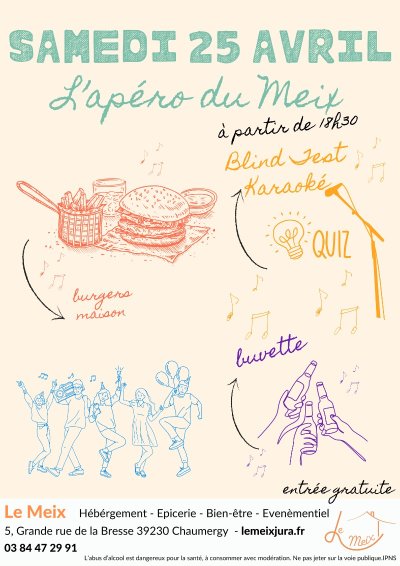 SAMEDI 25 AVRIL
L'apéro du Meix
à partir de 18h30
Blind Test
Karaoké
QUIZ
burgers
maison
buvette
entrée gratuite
Le Meix Hébergement - Epicerie - Bien-être - Evenèmentiel
5, Grande rue de la Bresse 39230 Chaumergy - lemeixjura.fr
03 84 47 29 91
Le Meix
L'abus d'alcool est dangereux pour la santé, à consommer avec modération. Ne pas jeter sur la voie publique.IPNS